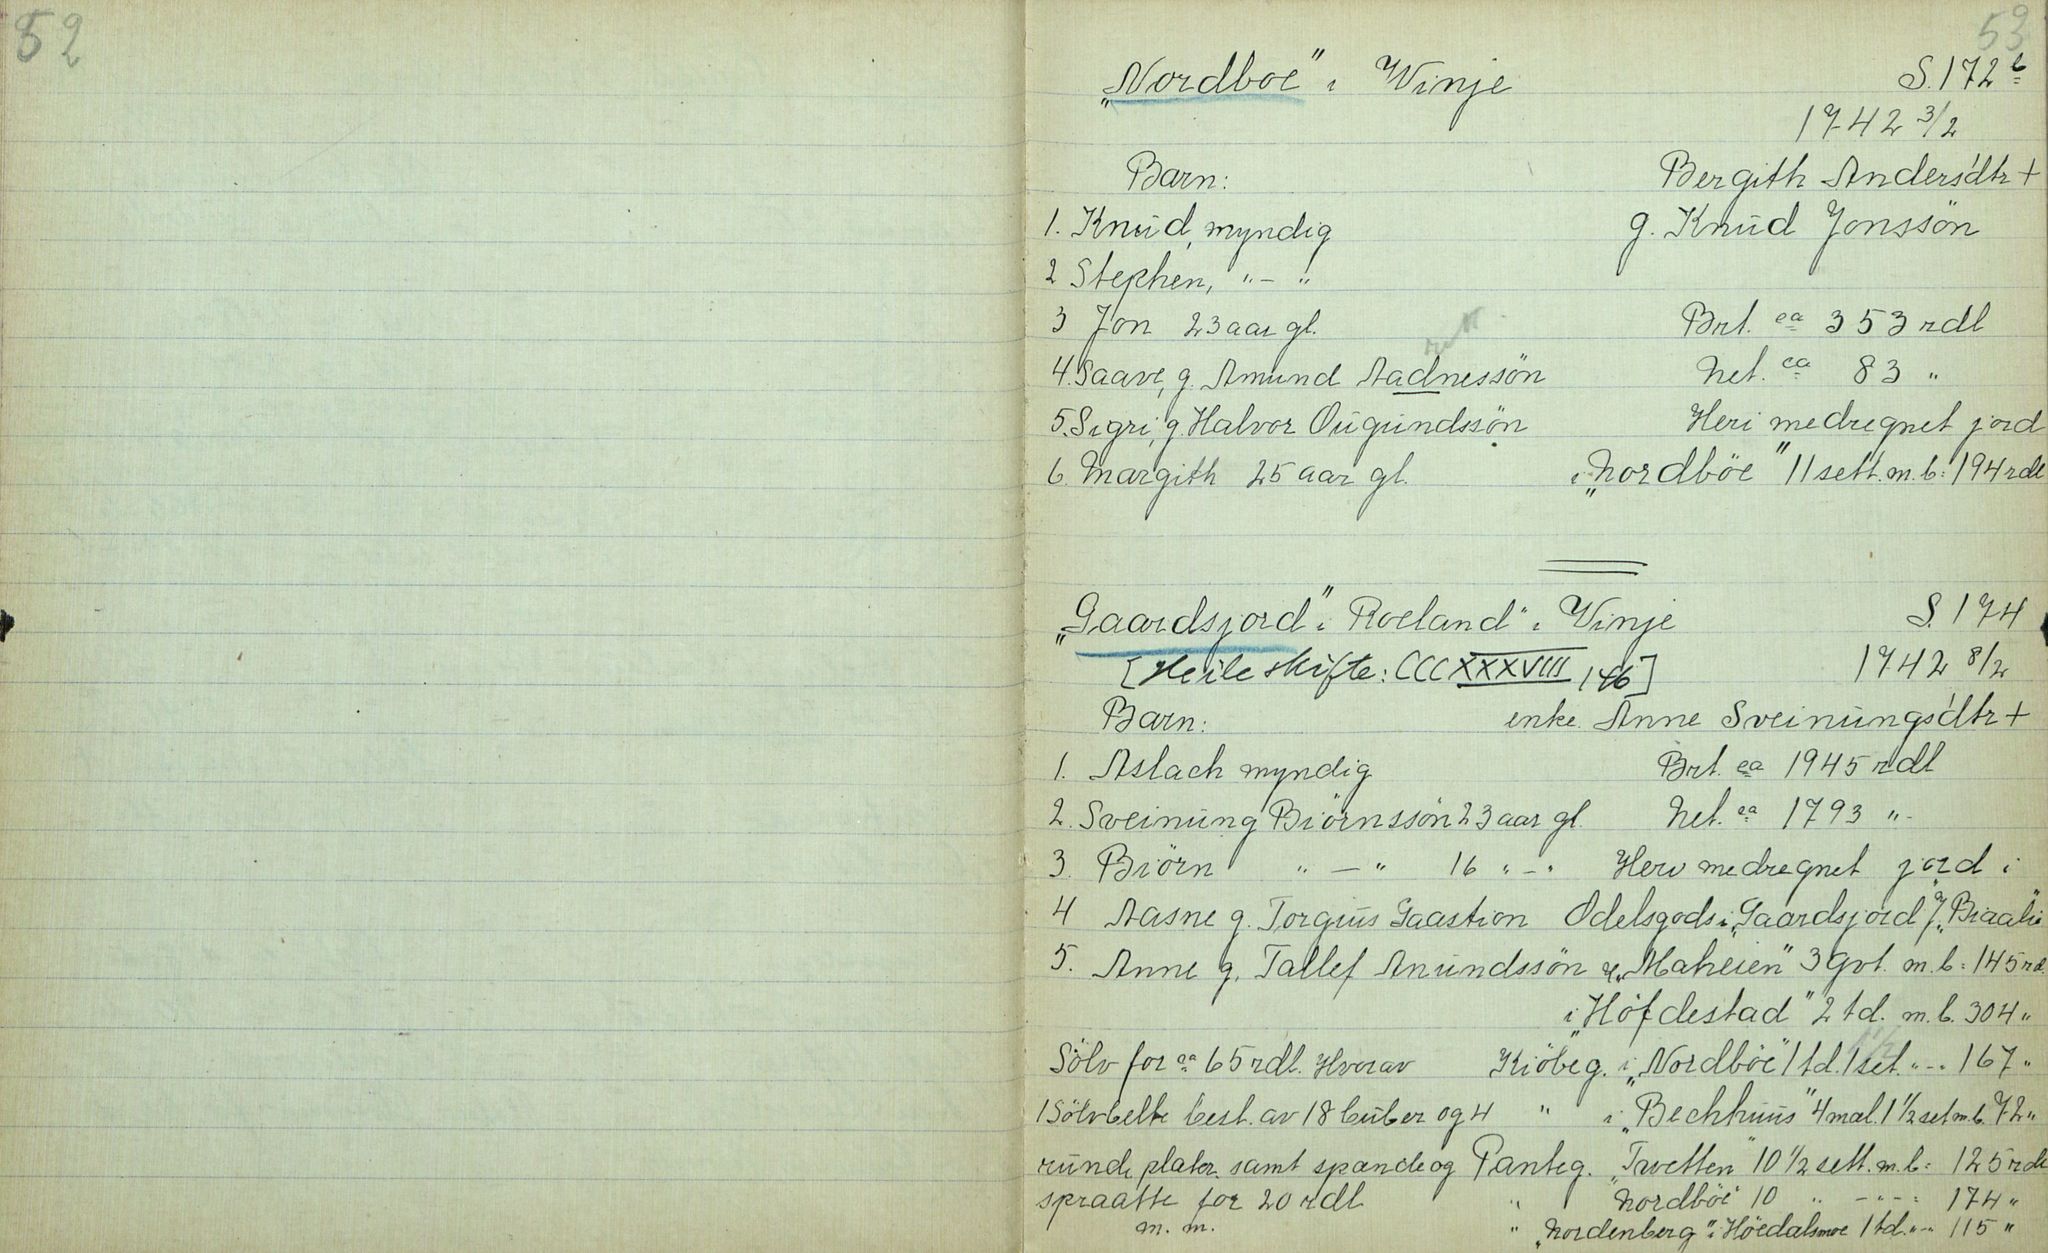 52
53
„Nordboe" i Winje S. 172 b
1742 3/2
Barn: Bergith Anders'dtr +
1. Knud, myndig g. Knud Jonssön
2 Stephen, "–"
3 Jon 23 aar gl. Brt. ca 353 rdl
4. Saave, g. Amund Aadnessön Net. ca 83 "
5. Sigri, g. Halvor Ougundssön Heri medregnet jord
6. Margith 25 aar gl. i „Nordböe" 11 sett. m.b: 194 rdl
„Gaardsjord" i Roeland" i Vinje S. 174
[Heile skifte: CCCXXXVIII, 146] 1742 8/2
Barn: enke Anne Sveinungs'dtr +
1. Aslach myndig Brt. ca 1945 rdl
2. Sveinung Biörnssön 23 aar gl. Net. ca 1793 "
3. Biörn "–" 16 "–" Herv medregnet jord i
4 Aasne g. Torgius Gaastion Odelsgods i „Gaardsjord",
5. Anne g. Tallef Anundssön „Maheien" 3 gvt. m.b: 145 rd.
i „Höfdestad" 2 td. m.b. 304 "
Sölv for ca 65 rdl. Hvorav Kiöbeg. i „Nordböe" 1 td. 1 set. "–" 167 "
1 Sölvbelte best. av 18 buber og 4 " i „Bechhuus" 4 mæl. 1 1/2 set m.b. 72 "
runde plater samt spænde og Panteg. „Tvetten" 10 1/2 sett. m.b: 125 rdl
spraatte for 20 rdl " Nordböe" 10 " –"–: 174 "
m.m. " „Nordenberg" i Höedalsmoe 1 td. "–" 115 "